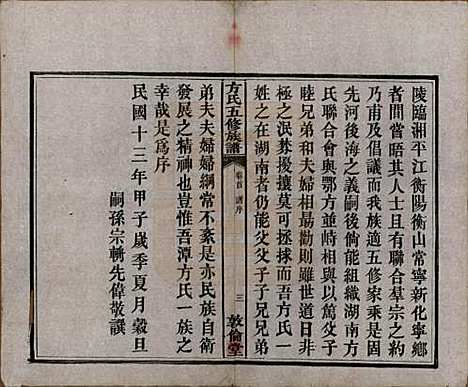 陵臨湘平江衡陽衡山常寧新化寧鄉
者間嘗晤其人士且有聯合羣宗之約
乃甫及倡議而我族適五修家乘是亦
先河後海之義嗣後倘能組織湖南方
氏聯合會與鄂方並峙相與以篤父子
睦兄弟和夫婦相勗勸則雖世道日非
極之泯棼擾攘莫可拯捄而吾方氏一
姓之在湖南者仍能父父子子兄兄弟
方氏五修族譜
卷首
譜序
三
敦倫堂
弟夫夫婦婦綱常不紊是亦民族自衛
發展之精神也豈惟吾潭方氏一族之
幸哉是爲序
民國十三年甲子歲季夏月穀旦
嗣孫宗
先偉敬譔